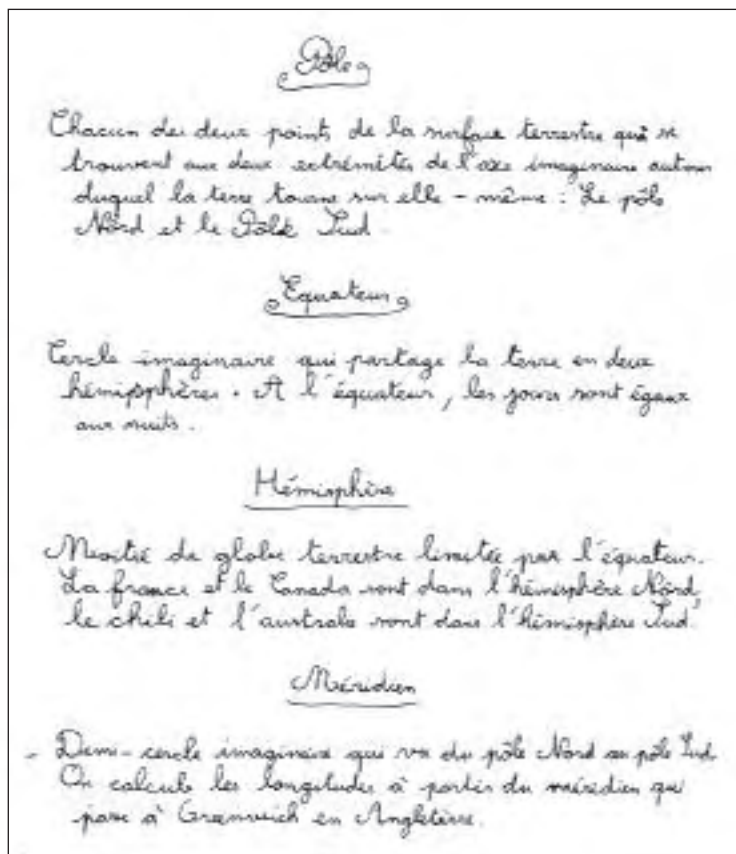 Pôle
Chacun des deux points de la surface terrestre qui se
trouvent aux deux extrémités de l'axe imaginaire autour
duquel la terre tourne sur elle-même : Le pôle
Nord et le Pôle Sud.
Equateur
Cercle imaginaire qui partage la terre en deux
hémipsphères. A l'équateur, les jours sont égaux
aux nuits.
Hémisphère
Moitié du globe terrestre limitée par l'équateur.
La france et le Canada sont dans l'hémisphère Nord,
le chili et l'australie sont dans l'hémisphère Sud.
Méridien
- Demi-cercle imaginaire qui va du pôle Nord au pôle Sud.
On calcule les longitudes à partir du méridien qui
passe à Greenwich en Angleterre.